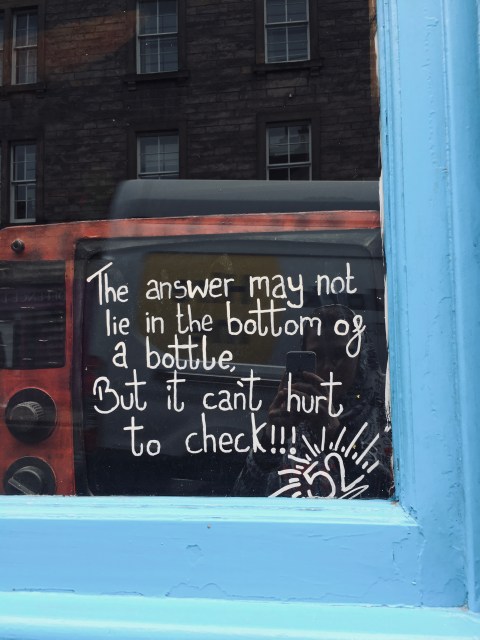 The answer may not
lie in the bottom of
a bottle,
But it can't hurt
to check!!!
52